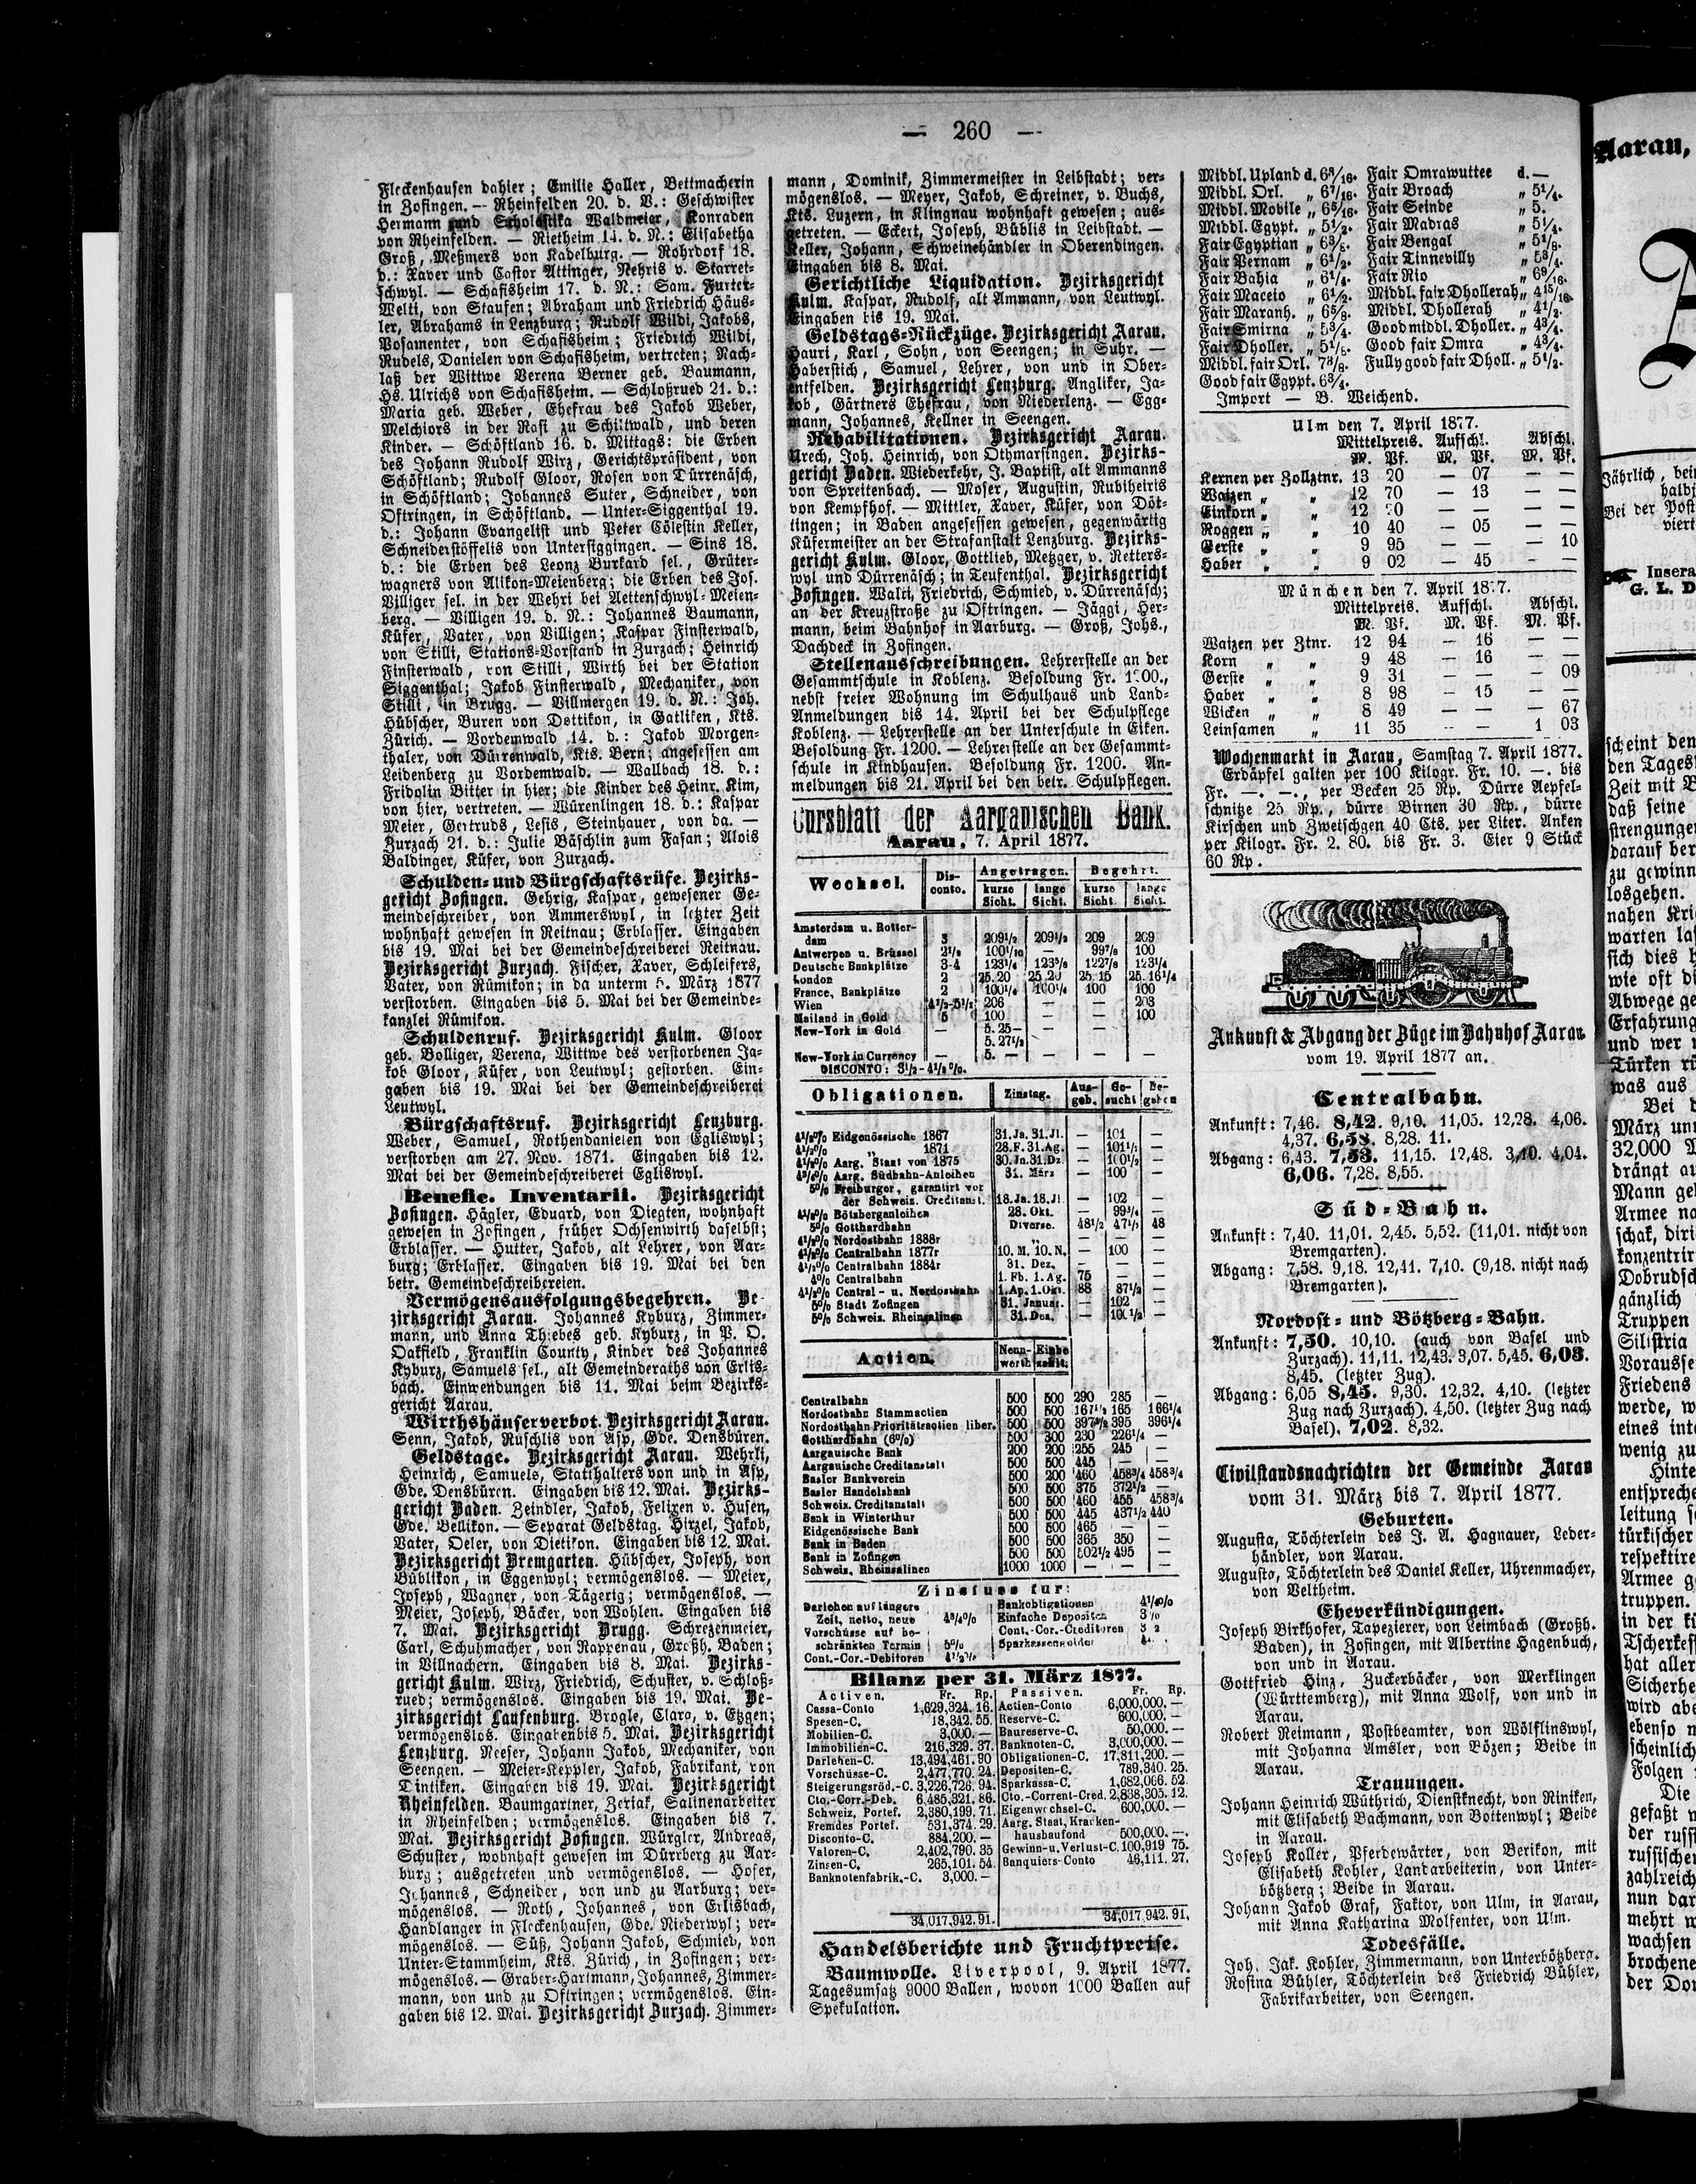 — 260 —
Fleckenhausen dahier; Emilie Haller, Bettmacherin
in Zofingen. — Rheinfelden 20. d. V.: Geschwister
Hermann und Scholastika Waldmeier, Konraden
von Rheinfelden. — Rietheim 14. d. N.: Elisabetha
Groß, Meßmers von Kadelburg. — Rohrdorf 18.
d.: Xaver und Castor Attinger, Nehris v. Starret-
schwyl. — Schafisheim 17. d. N.: Sam. Furter-
Welti, von Staufen; Abraham und Friedrich Häus-
ler, Abrahams in Lenzburg; Rudolf Wildi, Jakobs,
Posamenter, von Schafisheim; Friedrich Wildi,
Rudels, Danielen von Schafisheim, vertreten; Nach-
laß der Wittwe Verena Berner geb. Baumann,
Hs. Ulrichs von Schafisheim. — Schloßrued 21. d.:
Maria geb. Weber, Ehefrau des Jakob Weber,
Melchiors in der Rast zu Schiltwald, und deren
Kinder. — Schöftland 16. d. Mittags: die Erben
des Johann Rudolf Wirz, Gerichtspräsident, von
Schöftland; Rudolf Gloor, Rosen von Dürrenäsch,
in Schöftland; Johannes Suter, Schneider, von
Oftringen, in Schöftland. — Unter-Siggenthal 19.
d.: Johann Evangelist und Peter Cölestin Keller,
Schneiderstöffelis von Untersiggingen. — Sins 18.
d.: die Erben des Leonz Burkard sel., Grüter-
wagners von Alikon-Meienberg; die Erben des Jos.
Villiger sel. in der Wehri bei Aettenschwyl-Meien-
berg. — Villigen 19. d. N.: Johannes Baumann,
Küfer, Vater, von Villigen; Kaspar Finsterwald,
von Stilli, Stations-Vorstand in Zurzach; Heinrich
Finsterwald, von Stilli, Wirth bei der Station
Siggenthal; Jakob Finsterwald, Mechaniker, von
Stilli, in Brugg. — Villmergen 19. d. N.: Joh.
Hübscher, Buren von Dottikon, in Gatliken, Kts.
Zürich. — Vordemwald 14. d.: Jakob Morgen-
thaler, von Dürrenwald, Kts. Bern; angesessen am
Leidenberg zu Vordemwald. — Wallbach 18. d.:
Fridolin Bitter in hier; die Kinder des Heinr. Kim,
von hier, vertreten. — Würenlingen 18. d.: Kaspar
Meier, Gertruds, Lesis, Steinhauer, von da. —
Zurzach 21. d.: Julie Bäschlin zum Fasan; Alois
Baldinger, Küfer, von Zurzach.
Schulden- und Bürgschaftsrüfe. Bezirks-
gericht Zofingen. Gehrig, Kaspar, gewesener Ge-
meindeschreiber, von Ammerswyl, in letzter Zeit
wohnhaft gewesen in Reitnau; Erblasser. Eingaben
bis 19. Mai bei der Gemeindeschreiberei Reitnau.
Bezirksgericht Zurzach. Fischer, Xaver, Schleifers,
Vater, von Rümikon; in da unterm 5. März 1877
verstorben. Eingaben bis 5. Mai bei der Gemeinde-
kanzlei Rümikon.
Schuldenruf. Bezirksgericht Kulm. Gloor
geb. Bolliger, Verena, Wittwe des verstorbenen Ja-
kob Gloor, Küfer, von Leutwyl; gestorben. Ein-
gaben bis 19. Mai bei der Gemeindeschreiberei
Leutwyl.
Bürgschaftsruf. Bezirksgericht Lenzburg.
Weber, Samuel, Rothendanielen von Egliswyl;
verstorben am 27. Nov. 1871. Eingaben bis 12.
Mai bei der Gemeindeschreiberei Egliswyl.
Benefic. Inventarii. Bezirksgericht
Zofingen. Hägler, Eduard, von Diegten, wohnhaft
gewesen in Zofingen, früher Ochsenwirth daselbst;
Erblasser. — Hutter, Jakob, alt Lehrer, von Aar-
burg; Erblasser. Eingaben bis 19. Mai bei den
betr. Gemeindeschreibereien.
Vermögensausfolgungsbegehren. Be-
zirksgericht Aarau. Johannes Kyburz, Zimmer-
mann, und Anna Thiebes geb. Kyburz, in P. O.
Oakfield, Franklin County, Kinder des Johannes
Kyburz, Samuels sel., alt Gemeinderaths von Erlis-
bach. Einwendungen bis 11. Mai beim Bezirks-
gericht Aarau.
Wirthshäuserverbot. Bezirksgericht Aarau.
Senn, Jakob, Ruschlis von Asp, Gde. Densbüren.
Geldstage. Bezirksgericht Aarau. Wehrli,
Heinrich, Samuels, Statthalters von und in Asp,
Gde. Densbüren. Eingaben bis 12. Mai. Bezirks-
gericht Baden. Zeindler, Jakob, Felixen v. Husen,
Gde. Bellikon. — Separat Geldstag. Hirzel, Jakob,
Vater, Oeler, von Dietikon. Eingaben bis 12. Mai.
Bezirksgericht Bremgarten. Hübscher, Joseph, von
Büblikon, in Eggenwyl; vermögenslos. — Meier,
Joseph, Wagner, von Tägerig; vermögenslos. —
Meier, Joseph, Bäcker, von Wohlen. Eingaben bis
7. Mai. Bezirksgericht Brugg. Schrezenmeier,
Carl, Schuhmacher, von Rappenau, Großh. Baden;
in Villnachern. Eingaben bis 8. Mai. Bezirks-
gericht Kulm. Wirz, Friedrich, Schuster, v. Schloß-
rued; vermögenslos. Eingaben bis 19. Mai. Be-
zirksgericht Laufenburg. Brogle, Clara, v. Etzgen;
vermögenslos. Eingaben bis 5. Mai. Bezirksgericht
Lenzburg. Neeser, Johann Jakob, Mechaniker, von
Seengen. — Meier-Keppler, Jakob, Fabrikant, von
Tintiken. Eingaben bis 19. Mai. Bezirksgericht
Rheinfelden. Baumgartner, Zeriak, Salinenarbeiter
in Rheinfelden; vermögenslos. Eingaben bis 7.
Mai. Bezirksgericht Zofingen. Würgler, Andreas,
Schuster, wohnhaft gewesen im Dürrberg zu Aar-
burg; ausgetreten und vermögenslos. — Hofer,
Johannes, Schneider, von und zu Aarburg; ver-
mögenslos. — Roth, Johannes, von Erlisbach,
Handlanger in Fleckenhausen, Gde. Niederwyl; ver-
mögenslos. — Süß, Johann Jakob, Schmied, von
Unter-Stammheim, Kts. Zürich, in Zofingen; ver-
mögenslos. — Graber-Hartmann, Johannes, Zimmer-
mann, von und zu Oftringen; vermögenslos. Ein-
gaben bis 12. Mai. Bezirksgericht Zurzach. Zimmer-
mann, Dominik, Zimmermeister in Leibstadt; ver-
mögenslos. — Meyer, Jakob, Schreiner, v. Buchs,
Kts. Luzern, in Klingnau wohnhaft gewesen; aus-
getreten. — Eckert, Joseph, Büblis in Leibstadt. —
Keller, Johann, Schweinehändler in Oberendingen.
Eingaben bis 8. Mai.
Gerichtliche Liquidation. Bezirksgericht
Kulm. Kaspar, Rudolf, alt Ammann, von Leutwyl.
Eingaben bis 19. Mai.
Geldstags-Rückzüge. Bezirksgericht Aarau.
Hauri, Karl, Sohn, von Seengen; in Suhr. —
Haberstich, Samuel, Lehrer, von und in Ober-
entfelden. Bezirksgericht Lenzburg. Angliker, Ja-
kob, Gärtners Ehefrau, von Niederlenz. — Egg-
mann, Johannes, Kellner in Seengen.
Rehabilitationen. Bezirksgericht Aarau.
Urech, Joh. Heinrich, von Othmarsingen. Bezirks-
gericht Baden. Wiederkehr, J. Baptist, alt Ammanns
von Spreitenbach. — Moser, Augustin, Rubiheiris
von Kempfhof. — Mittler, Xaver, Küfer, von Döt-
tingen; in Baden angesessen gewesen, gegenwärtig
Küfermeister an der Strafanstalt Lenzburg. Bezirks-
gericht Kulm. Gloor, Gottlieb, Metzger, v. Retters-
wyl und Dürrenäsch; in Teufenthal. Bezirksgericht
Zofingen. Walti, Friedrich, Schmied, v. Dürrenäsch;
an der Kreuzstraße zu Oftringen. — Jäggi, Her-
mann, beim Bahnhof in Aarburg. — Groß, Johs.,
Dachdeck in Zofingen.
Stellenausschreibungen. Lehrerstelle an der
Gesammtschule in Koblenz. Besoldung Fr.
nebst freier Wohnung im Schulhaus und Land-
Anmeldungen bis 14. April bei der Schulpflege
Koblenz. — Lehrerstelle an der Unterschule in Eiken.
Besoldung Fr. 1200. — Lehrerstelle an der Gesammt-
schule in Kindhausen. Besoldung Fr. 1200. An-
meldungen bis 21. April bei den betr. Schulpflegen.
Cursblatt der Aargauischen Bank.
Aarau, 7. April 1877.
Wechsel. Dis-conto. Angetragen. Begehrt.
kurze Sicht. lange Sicht. kurze Sicht. lange Sicht.
Amsterdam u. Rotter-
dam 3 209 1/2 209 1/2 209 209
Antwerpen u. Brüssel 2 1/2 100 1/10 — 99 7/8 100
Deutsche Bankplätze 3-4 123 1/4 123 3/8 122 7/8 123 1/4
London 2 25.20 25.20 25.15 25.16 1/4
France, Bankplätze 2 100 1/8 100 1/8 100 100
Wien 4 1/2-5 1/2 206 — — 203
Mailand in Gold 5 100 — — 100
New-York in Gold — 5.25— — — —
5.27 1/2
New-York in Currency — 5.— — — —
DISCONTO: 3 1/2 - 4 1/2 %.
Obligationen. Zinstag. Aus-geb. Ge-sucht Be-geben
4 1/2% Eidgenössische 1867 31. Ja. 31. Jl. — 101 —
4 1/2% „ 1871 28. F. 31. Ag. — 101 1/2 —
4 1/2% Aarg. Staat von 1875 30. Jn. 31. Dz. — 100 1/2 —
4 3/4% Aarg. Südbahn-Anleihen 31. März — 100 —
5% Freiburger, garantirt von
der Schweiz. Creditanst. 18. Ja. 18. Jl. — 102 —
4 1/2% Bötzberganleihen 28. Okt. — 99 3/4 —
5% Gotthardbahn Diverse. 48 1/2 47 1/2 48
4 1/2% Nordostbahn 1888r „ — — —
4 1/2% Centralbahn 1877r 10. M. 10. N. — 100 —
4 1/2% Centralbahn 1884r 31. Dez. — — —
4% Centralbahn 1. Fb. 1. Ag. 75 — —
4 1/2% Central- u. Nordostbahn 1. Ap. 1. Okt. 88 87 1/2 —
5% Stadt Zofingen 31. Januar. — 102 —
5% Schweiz. Rheinsalinen 31. Dez. — 100 1/2 —
Actien. Nenn-werth Einbezahlt.
Centralbahn 500 500 290 285 —
Nordostbahn Stammactien 500 500 167 1/2 165 166 1/4
Nordostbahn Prioritätsactien liber. 500 500 397 1/2 395 396 1/4
Gotthardbahn (6%) 500 300 230 226 1/4 —
Aargauische Bank 200 200 255 245 —
Aargauische Creditanstalt 500 500 445 — —
Basler Bankverein 500 200 460 458 3/4 458 3/4
Basler Handelsbank 500 500 375 372 1/2 —
Schweiz. Creditanstalt 500 500 460 455 458 3/4
Bank in Winterthur 500 500 445 437 1/2 440
Eidgenössische Bank 500 500 465 — —
Bank in Baden 500 500 365 350 —
Bank in Zofingen 500 500 502 1/2 495 —
Schweiz. Rheinsalinen 1000 1000 — — —
Zinsfuss für:
Darlehen auf längere
Zeit, netto, neue 4 3/4%
Vorschüsse auf be-
schränkten Termin 5%
Cont.-Cor.-Debitoren 4 1/2%
Bankobligationen
Einfache Depositen
Cont.-Cor.-Creditoren
Sparkassengelder
Bilanz per 31. März 1877.
Activen. Fr. Rp.
Cassa-Conto 1,629,324. 16.
Spesen-C. 18,342. 55.
Mobilien-C. 3,000. —
Immobilien-C. 216,329. 37.
Darlehen-C. 13,494,461. 90
Vorschüsse-C. 2,477,770. 24.
Steigerungsröd.-C. 3,226,726. 94.
Cto.-Corr.-Deb. 6,485,321. 86.
Schweiz. Portef. 2,380,199. 71.
Fremdes Portef. 531,374. 29.
Disconto-C. 884,200. —
Valoren-C. 2,402,790. 35
Zinsen-C. 265,101. 54.
Banknotenfabrik.-C. 3,000. —
34,017,942. 91.
Passiven. Fr. Rp.
Actien-Conto 6,000,000. —
Reserve-C. 600,000. —
Baureserve-C. 50,000. —
Banknoten-C. 3,000,000. —
Obligationen-C. 17,811,200. —
Depositen-C. 789,340. 25.
Sparkassa-C. 1,682,066. 52.
Cto.-Corrent-Cred. 2,838,305. 12.
Eigenwechsel-C. 600,000. —
Aarg. Staat, Kranken-
hausbaufond 500,000. —.
Gewinn- u. Verlust-C. 100,919 75.
Banquiers-Conto 46,111. 27.
34,017,942. 91.
Handelsberichte und Fruchtpreise.
Baumwolle. Liverpool, 9. April 1877.
Tagesumsatz 9000 Ballen, wovon 1000 Ballen auf
Spekulation.
Middl. Upland d. 6 3/16. Fair Omrawuttee d. —
Middl. Orl. „ 6 7/16. Fair Broach „ 5 1/4.
Middl. Mobile „ 6 5/16. Fair Seinde „ 5.
Middl. Egypt. „ 5 1/2. Fair Madras „ 5 1/4.
Fair Egyptian „ 6 3/8. Fair Bengal „ 5 1/8.
Fair Pernam „ 6 1/2. Fair Tinnevilly „ 5 3/4.
Fair Bahia „ 6 1/4. Fair Rio „ 6 9/16.
Fair Maceio „ 6 1/2. Middl. fair Dhollerah „ 4 15/16.
Fair Maranh. „ 6 5/8. Middl. Dhollerah „ 4 1/2.
Fair Smirna „ 5 3/4. Good middl. Dholler. „ 4 3/4.
Fair Dholler. „ 5 1/8. Good fair Omra „ 4 3/4.
Middl. fair Orl. 7 3/8. Fully good fair Dholl. „ 5 1/2.
Good fair Egypt. 6 3/4.
Import — B. Weichend.
Ulm den 7. April 1877.
Mittelpreis. Aufschl. Abschl.
M. Pf. M. Pf. M. Pf.
Kernen per Zollztnr. 13 20 — 07 — —
Waizen „ „ 12 70 — 13 — —
Einkorn „ „ 12 20 — — — —
Roggen „ „ 10 40 — 05 — —
Gerste „ „ 9 95 — — — 10
Haber „ „ 9 02 — 45 — —
München den 7. April 1877.
Mittelpreis. Aufschl. Abschl.
M. Pf. M. Pf. M. Pf.
Waizen per Ztnr. 12 94 — 16 — —
Korn „ „ 9 48 — 16 — —
Gerste „ „ 9 31 — — — 09
Haber „ „ 8 98 — 15 — —
Wicken „ „ 8 49 — — — 67
Leinsamen „ 11 35 — — 1 03
Wochenmarkt in Aarau, Samstag 7. April 1877.
Erdäpfel galten per 100 Kilogr. Fr. 10. —. bis
Fr. —. —., per Becken 25 Rp. Dürre Aepfel-
schnitze 25 Rp., dürre Birnen 30 Rp., dürre
Kirschen und Zwetschgen 40 Cts. per Liter. Anken
per Kilogr. Fr. 2. 80. bis Fr. 3. Eier 9 Stück
60 Rp.
Ankunft & Abgang der Züge im Bahnhof Aarau
vom 19. April 1877 an.
Centralbahn.
Ankunft: 7,46. 8,42. 9,10. 11,05. 12,28. 4,06.
4,37. 6,53. 8,28. 11.
Abgang: 6,43. 7,53. 11,15. 12,48. 3,10. 4,04.
6,06. 7,28. 8,55.
Süd-Bahn.
Ankunft: 7,40. 11,01. 2,45. 5,52. (11,01. nicht von
Bremgarten).
Abgang: 7,58. 9,18. 12,41. 7,10. (9,18. nicht nach
Bremgarten).
Nordost- und Bötzberg-Bahn.
Ankunft: 7,50. 10,10. (auch von Basel und
Zurzach). 11,11. 12,43. 3,07. 5,45. 6,03.
8,45. (letzter Zug).
Abgang: 6,05 8,45. 9,30. 12,32. 4,10. (letzter
Zug nach Zurzach). 4,50. (letzter Zug nach
Basel). 7,02. 8,32.
Civilstandsnachrichten der Gemeinde Aarau
vom 31. März bis 7. April 1877.
Geburten.
Augusta, Töchterlein des J. A. Hagnauer, Leder-
händler, von Aarau.
Augusta, Töchterlein des Daniel Keller, Uhrenmacher,
von Veltheim.
Eheverkündigungen.
Joseph Birkhofer, Tapezierer, von Leimbach (Großh.
Baden), in Zofingen, mit Albertine Hagenbuch,
von und in Aarau.
Gottfried Hinz, Zuckerbäcker, von Merklingen
(Württemberg), mit Anna Wolf, von und in
Aarau.
Robert Reimann, Postbeamter, von Wölflinswyl,
mit Johanna Amsler, von Bözen; Beide in
Aarau.
Trauungen.
Johann Heinrich Wüthrich, Dienstknecht, von Riniken,
mit Elisabeth Bachmann, von Bottenwyl; Beide
in Aarau.
Joseph Koller, Pferdewärter, von Berikon, mit
Elisabeth Kohler, Landarbeiterin, von Unter-
bötzberg; Beide in Aarau.
Johann Jakob Graf, Faktor, von Ulm, in Aarau,
mit Anna Katharina Molfenter, von Ulm.
Todesfälle.
Joh. Jak. Kohler, Zimmermann, von Unterbötzberg.
Rosina Bühler, Töchterlein des Friedrich Bühler,
Fabrikarbeiter, von Seengen.
Aarau,